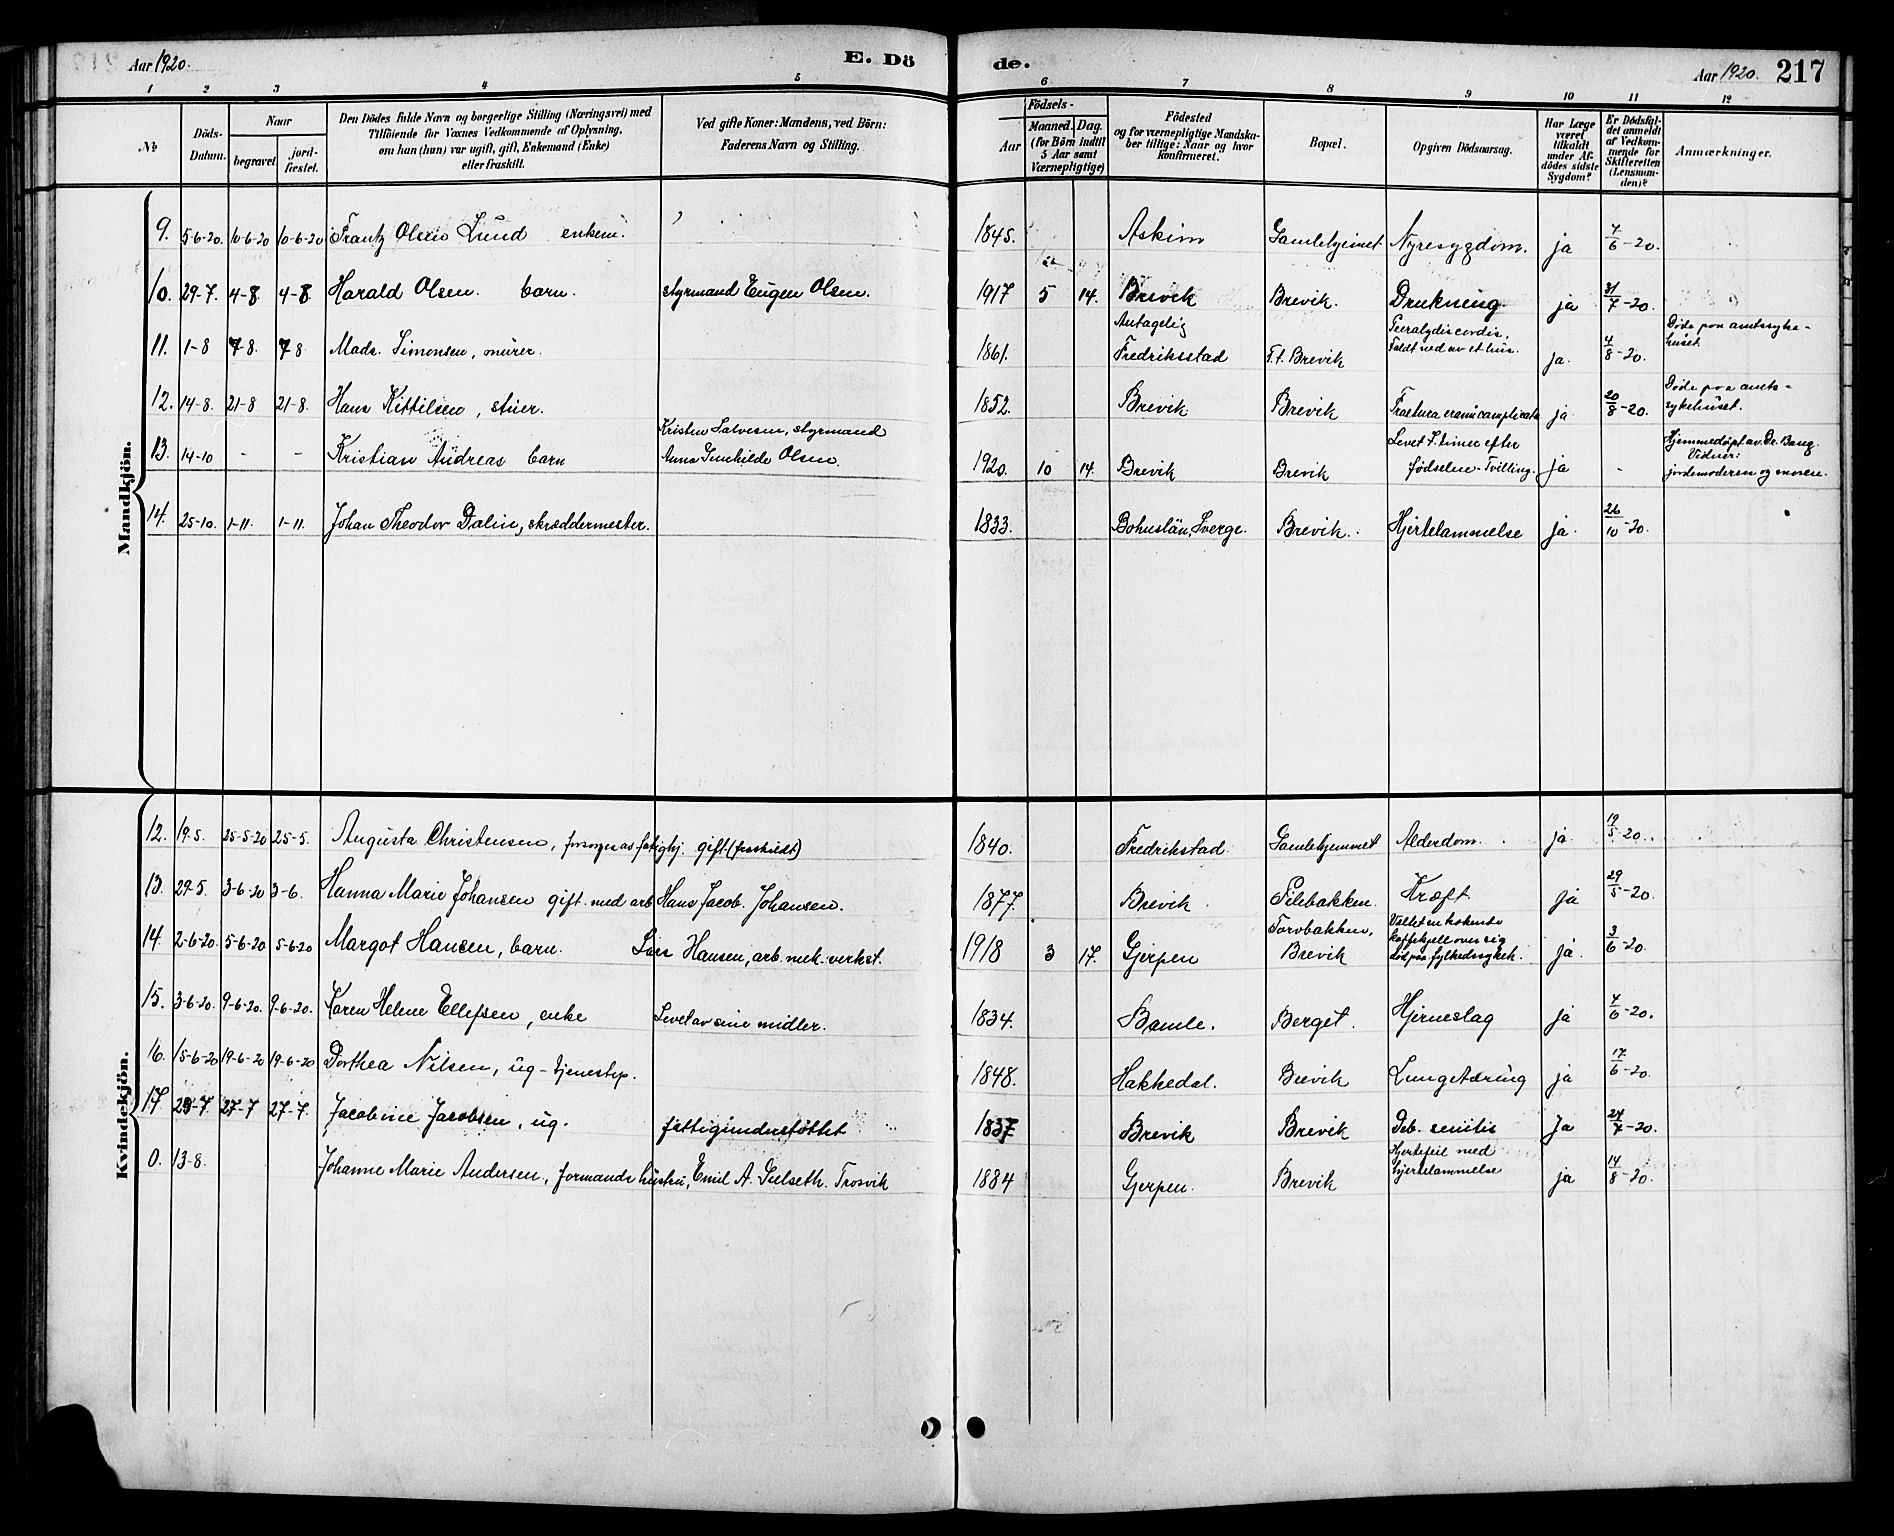 Aar 1920. E. Dö de. Aar 1920. 217
1 2 3 4 5 6 7 8 9 10 11 12
No
Döds-
Datum.
Naar
begravet.
jord-
fæstet.
Den Dödes fulde Navn og borgerlige Stilling (Næringsvei) med
Tilföiende for Voxnes Vedkommende af Oplysning,
om han (hun) var ugift, gift, Enkemand (Enke)
eller fraskilt.
Ved gifte Koner: Mandens, ved Börn:
Faderens Navn og Stilling.
Födsels-
Aar
Maaned. Dag.
(for Börn indtil
5 Aar samt
Værnepligtige)
Födested
og for værnepligtige Mandska-
ber tillige: Naar og hvor
konfirmeret.
Bopæl.
Opgiven Dödsaarsag.
Har Læge
været
tilkaldt
under Af-
dödes sidste
Sygdom?
Er Dödsfal-
det anmeldt
af Vedkom-
mende for
Skifteretten
(Lensman-
den)?
Anmærkninger.
Mandkjön.
9. 5-6-20. 10-6-20 10-6-20 Frantz Olsen Lund enkem. 1845. Askim Gamlehjemmet Nyresygdom. ja 7/6-20.
10. 29-7. 4-8. 4-8 Harald Olsen. barn. styrmand Eugen Olsen. 1917 5 14. Brevik Brevik. Drukning. ja 31/7-20.
11. 1-8 7-8. 7-8 Mads. Simonsen, murer. 1861. Antagelig
Fredriksstad F.t. Brevik Paralydis cordis.
Faldt ned av et hus. ja. 4/8-20. Døde paa amtssyke-
huset
12. 14-8. 21-8 21-8. Hans Kittilsen, stuer. 1852. Brevik Brevik Fractura cranii complicata ja 20/8-20. Døde paa amts-
sykehuset.
13. 14-10 - - Kristian Andreas barn Kristen Salvesen, styrmand
Anna Gunhilde Olsen. 1920. 10 14. Brevik Brevik Levet 7. timer efter
fødselen - Tvilling. ja - Hjemmedøpt av Dr. Bang.
Vidner:
jordemoderen og moren.
14. 25-10. 1-11. 1-11. Johan Theodor Dalin, skræddermester. 1833. Bohuslän, Sverge. Brevik. Hjertelammelse ja. 26/10-20.
Kvindekjön.
12. 19-5. 25-5-20 25-5. Augusta Christensen, forsorges av fatighj. gift (fraskildt) 1840. Fredrikstad Gamlehjemmet Alderdom. ja. 19/5-20.
13. 29-5. 3-6-20 3-6. Hanna Marie Johansen gift. med arb Hans Jacob. Johansen. 1877. Brevik Pilebakken. Kræft ja 29/5-20.
14. 2-6-20. 5-6-20 5-6-20 Margot Hansen, barn. Lars Hansen, arb. mek. verkst. 1918 3 17. Gjerpen Torvbakken,
Brevik Væltet en kokende
kaffekjell over sig
død paa fylkessykeh. ja. 3/6-20.
15. 3-6-20. 9-6-20. 9-6-20. Karen Helene Ellefsen, enke Levet av sine midler. 1834. Bamle. Berget. Hjerneslag ja 4/6-20.
16. 15-6-20 19-6-20 19-6-20 Dorthea Nilsen, ug - tjenestep. 1848. Hakkedal. Brevik Lungetæring ja 17/6-20.
17 23-7 27-7 27-7. Jacobine Jacobsen, ug. fattigunderstøttet 1837 Brevik Brevik Deb. senilis Ja 24/7-20.
0. 13-8. Johanne Marie Andersen, formands hustru, Emil A. Gulseth. Trosvik 1884 Gjerpen. Brevik Hjertefeil med
hjertelammelse ja 14/8-20.